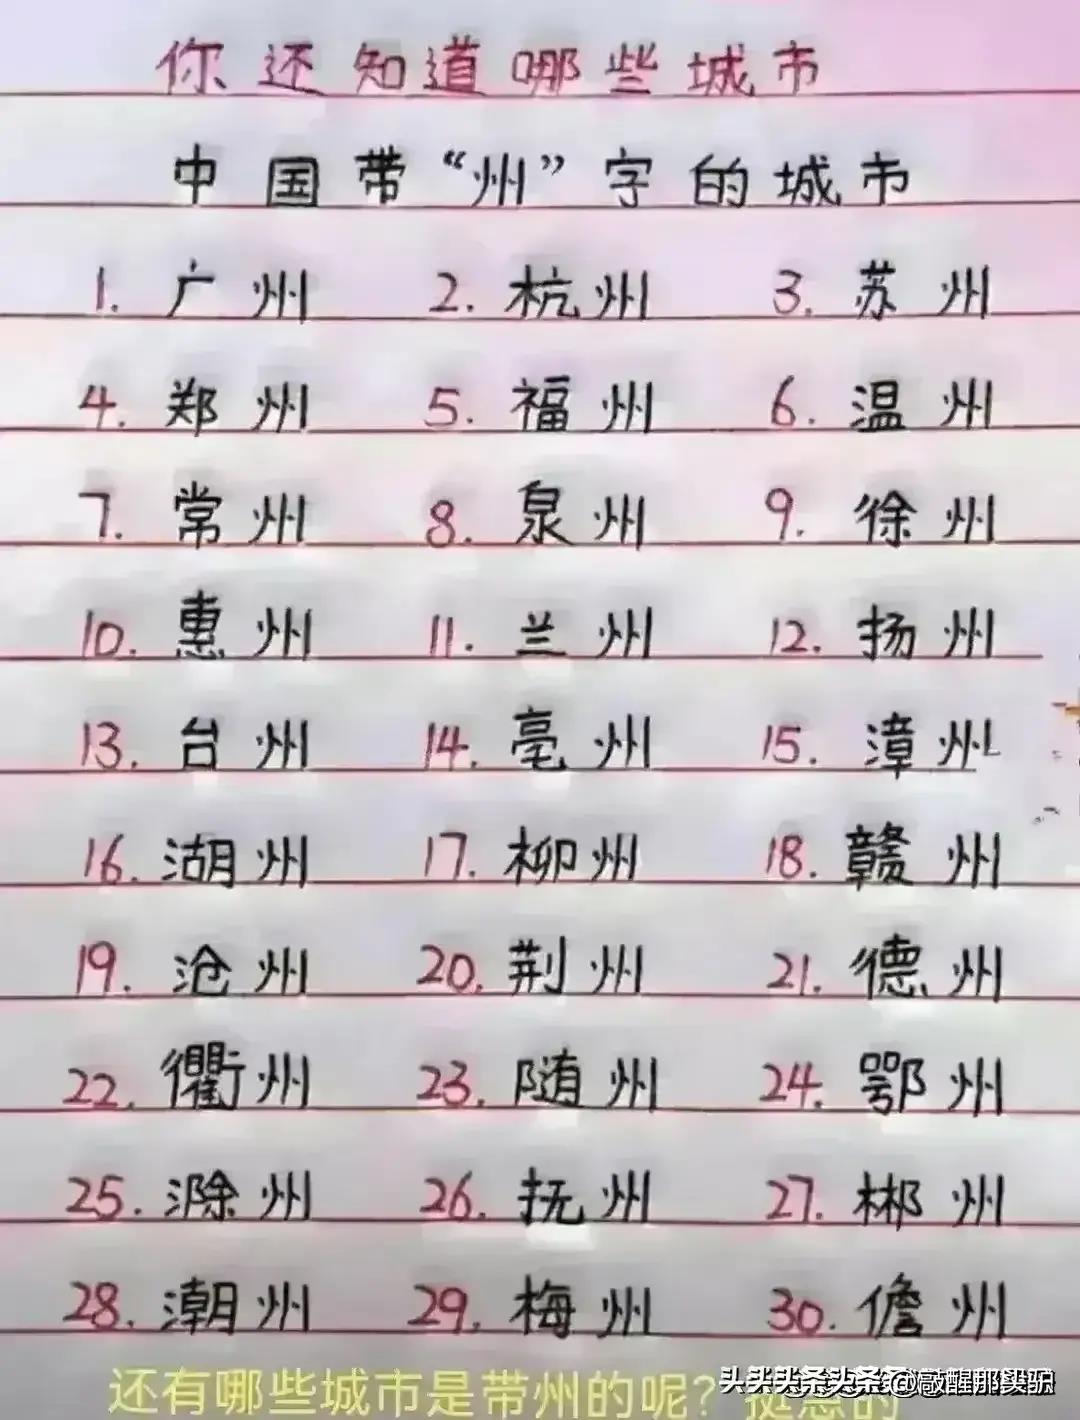 你还知道哪些城市
中国带“州”字的城市
1. 广州 2. 杭州 3. 苏州
4. 郑州 5. 福州 6. 温州
7. 常州 8. 泉州 9. 徐州
10. 惠州 11. 兰州 12. 扬州
13. 台州 14. 亳州 15. 漳州
16. 湖州 17. 柳州 18. 赣州
19. 沧州 20. 荆州 21. 德州
22. 衢州 23. 随州 24. 鄂州
25. 滁州 26. 抚州 27. 郴州
28. 潮州 29. 梅州 30. 儋州
还有哪些城市是带州的呢？挺急的